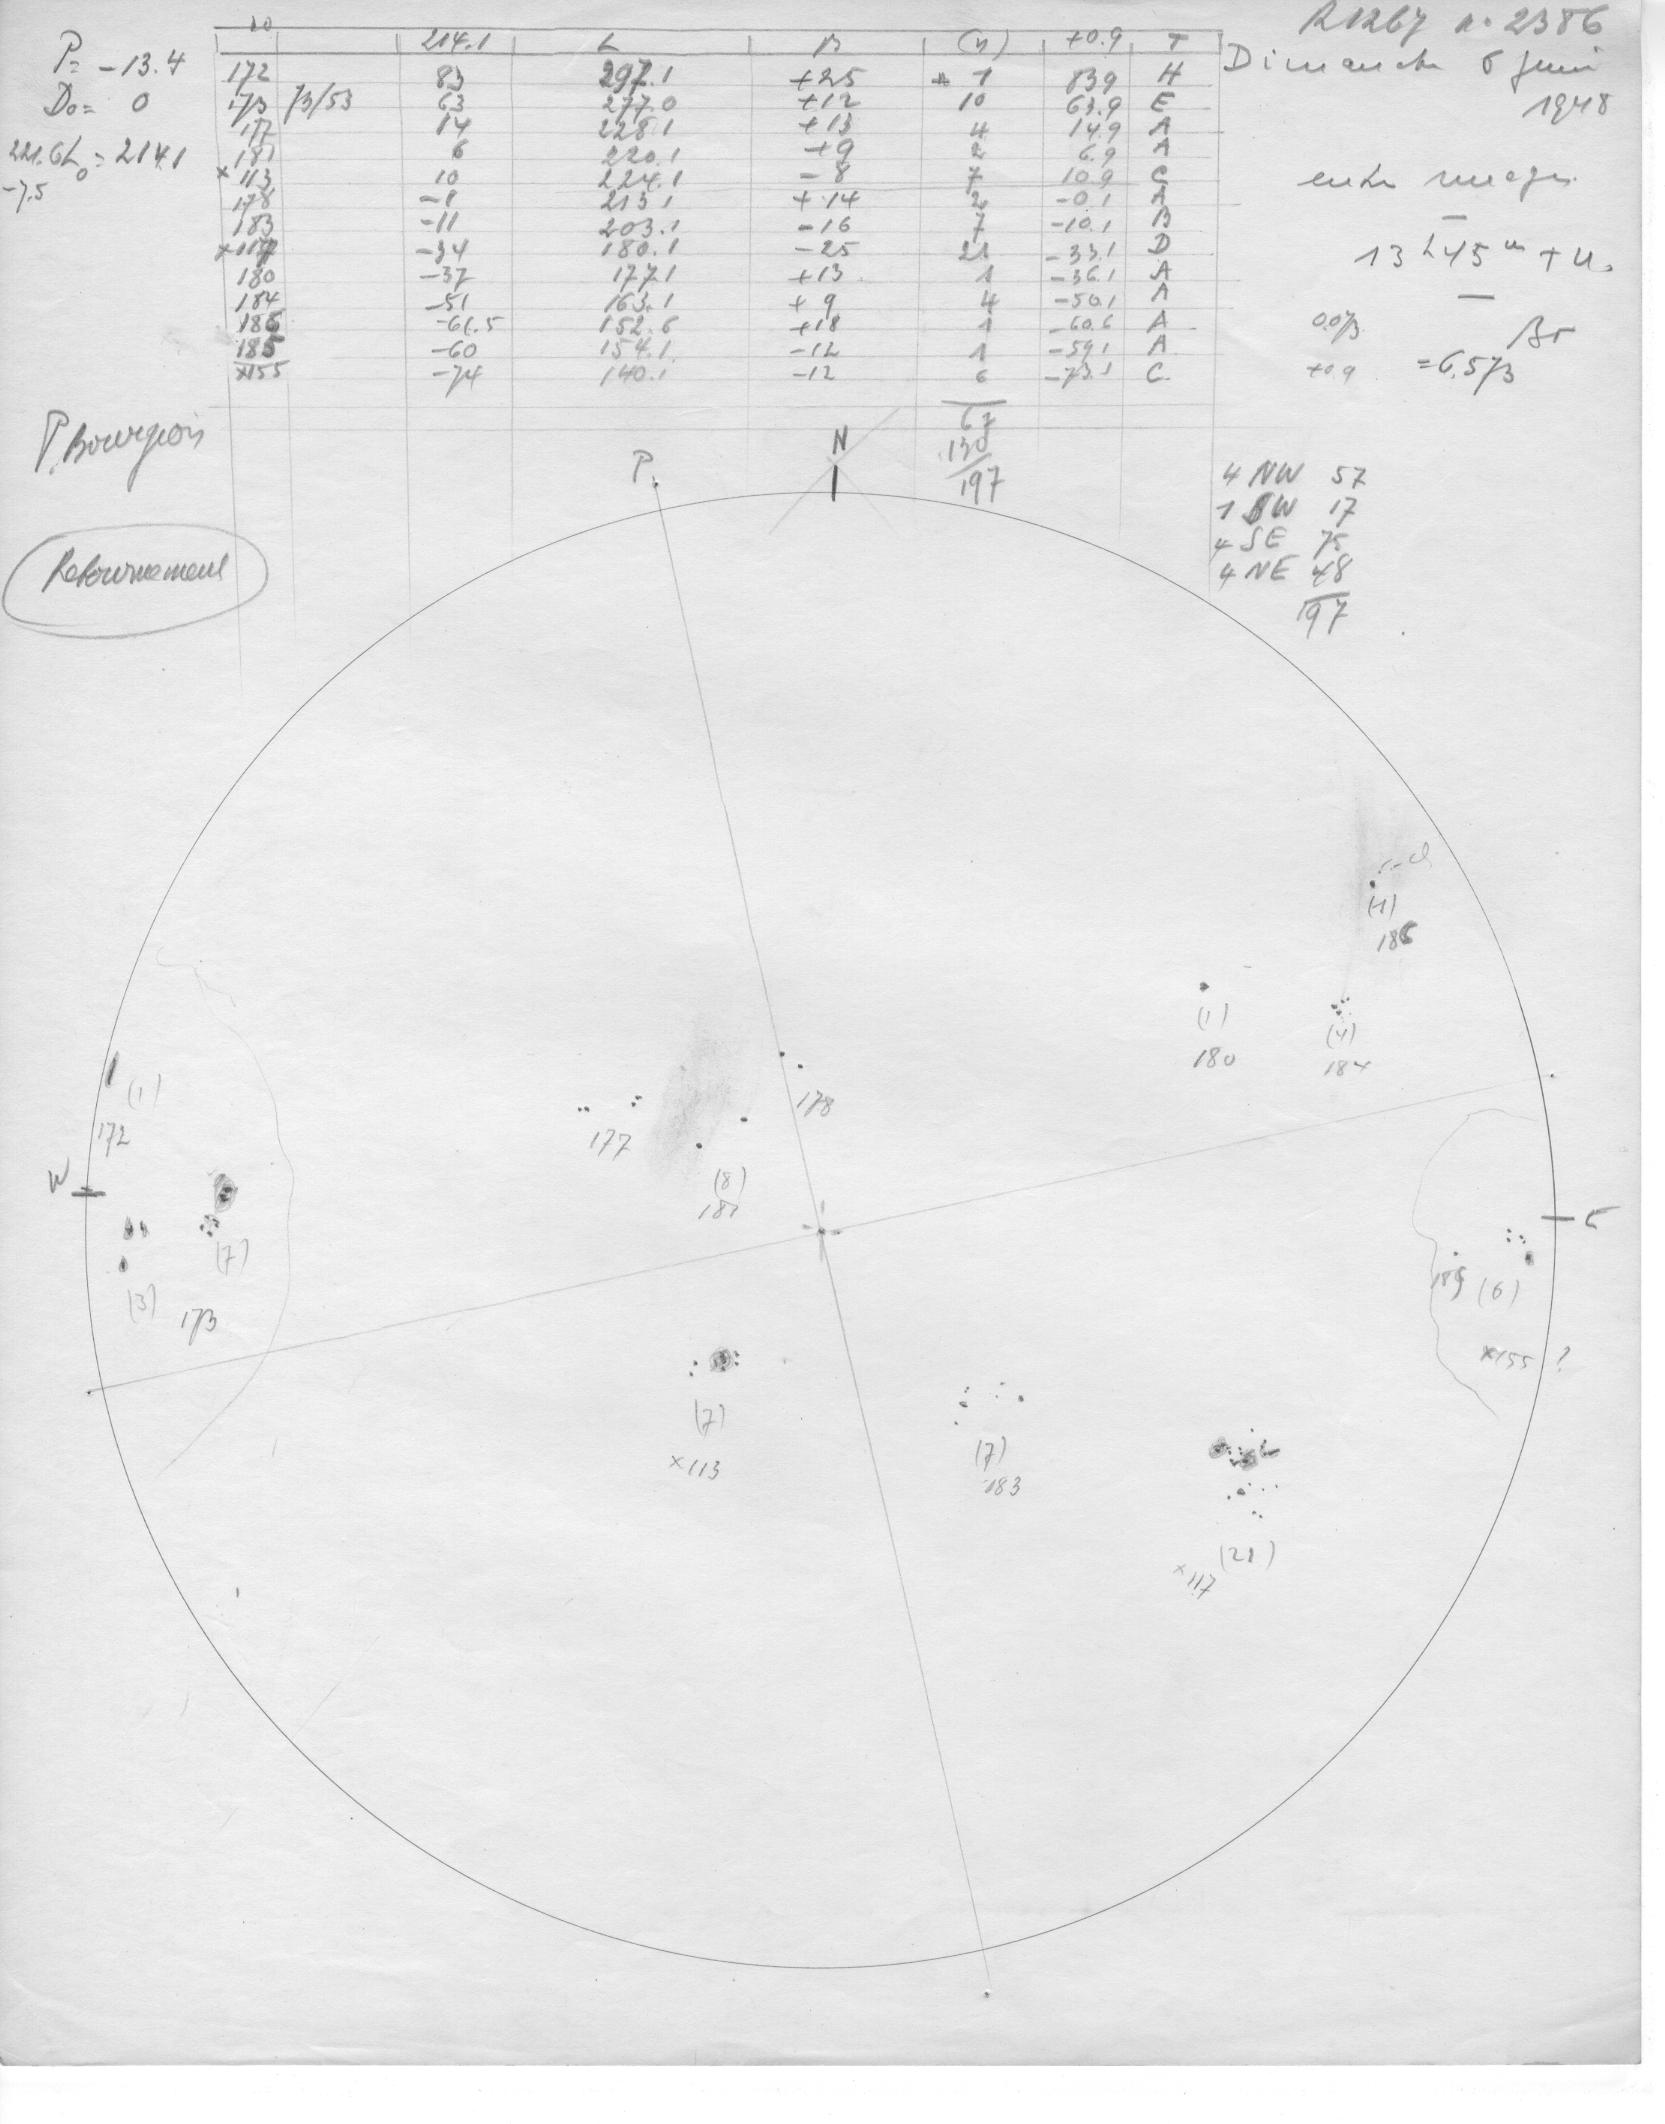 R1267 n. 2386
Dimanche 6 juin
1948
P= -13.4
D0= 0
221.6 L0= 214.1
-7.5
214.1 L B (n) +0.9 T
172 83 297.1 +25 1 83.9 H
173 73/53 63 277.0 +12 10 63.9 E
177 14 228.1 +13 4 14.9 A
181 6 220.1 +9 2 6.9 A
x113 10 224.1 -8 7 10.9 C
178 -1 213.1 +14 2 -0.1 A
183 -11 203.1 -16 7 -10.1 B
x117 -34 180.1 -25 21 -33.1 D
180 -37 177.1 +13 1 -36.1 A
184 -51 163.1 +9 4 -50.1 A
186 -61.5 152.6 +18 1 -60.6 A
185 -60 154.1 -12 1 -59.1 A
x155 -74 140.1 -12 6 -73.1 C
67
130
197
entre nuages
13h45m T.U.
Br
0.073
+0.9 =6.573
P. Bourgeois
Retournement
4 NW 57
1 SW 17
4 SE 75
4 NE 48
197
P.
N
(1)
186
(1)
180
(4)
184
178
177
(8)
181
(1)
172
W
E
(7)
(3)
173
185
(6)
x155 ?
(7)
x113
(7)
183
(21)
x117